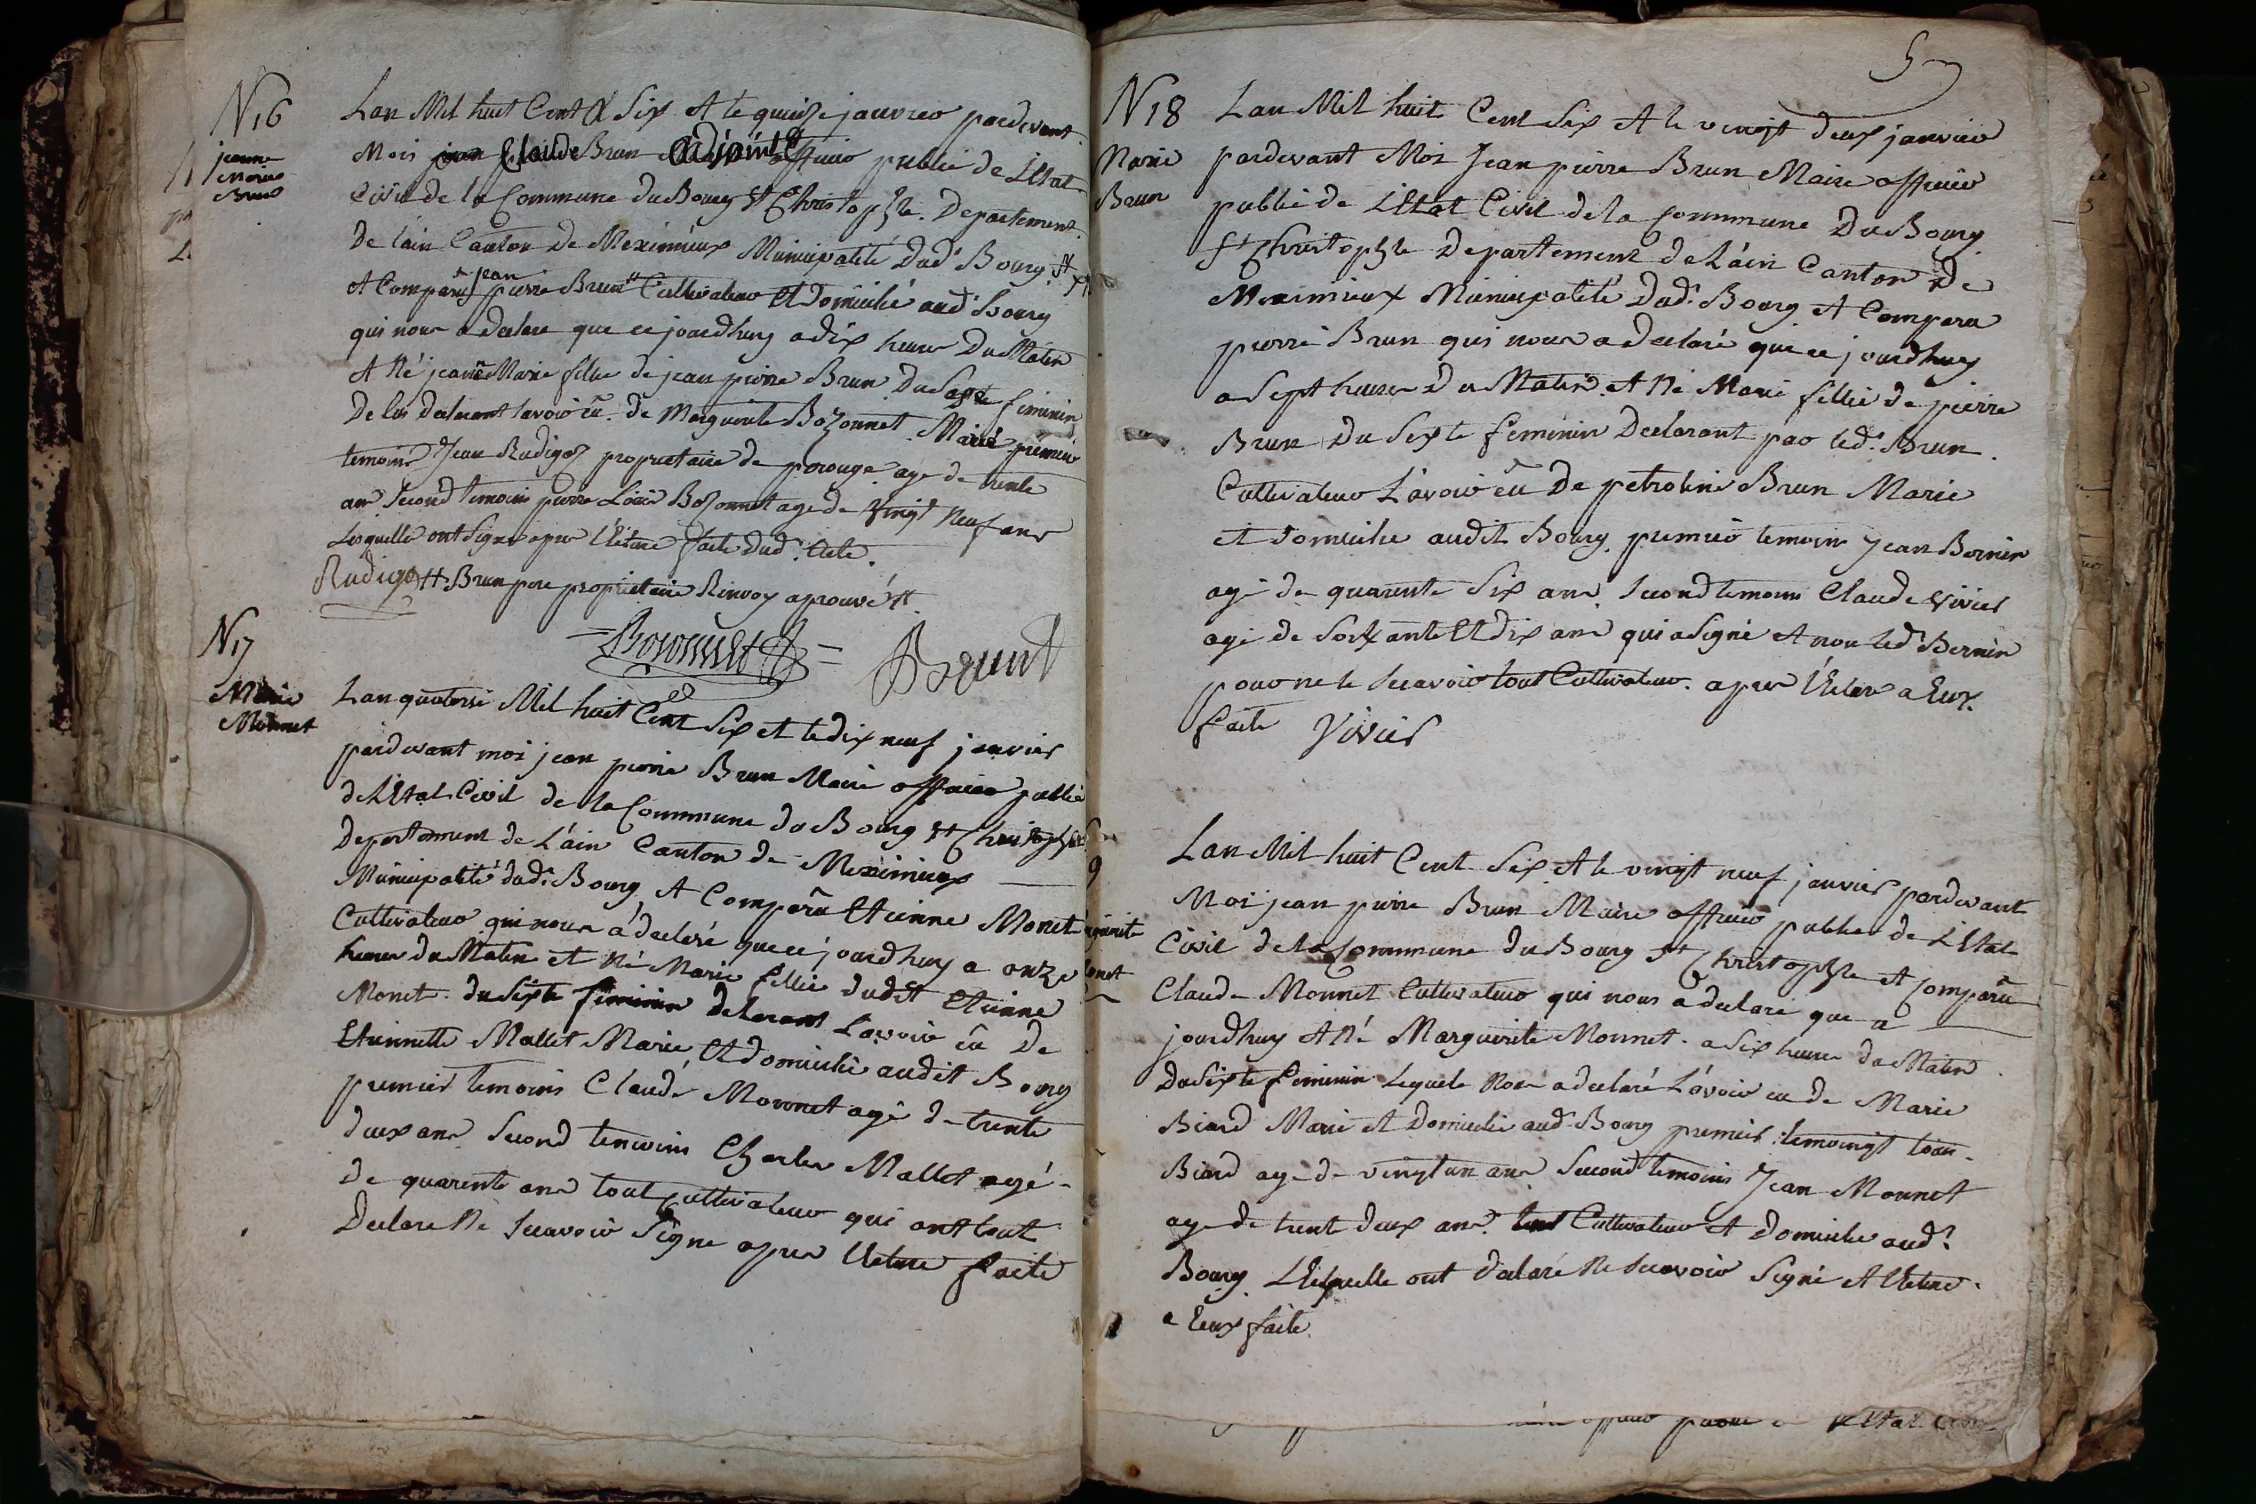 N 16
jeanne
Marie
Brun
Lan Mil huit Cent Six Et le quinze janvier pardevant
Moi Claude Brun adjoint officier public de L'Etat
Civil de la Commune du Bourg St Christophle. Departement
De lain Canton de Meximieux Municipalité Dudt Bourg
Et Comparu jean pierre Brun Cultivateur Et Domicilié audt Bourg
qui nous a declare que ce jourdhuy a dix heures Du Matin
Et Né jeanne Marie fille de jean pierre Brun Du Sexe feminin
De lui declarant lavoir eu de Marguerite Bozonnet Marié premier
temoins Jean Rudigoz proprietaire de perouge age de trente
ans Second temoins pierre Louis Bozonnet age de Vingt Neuf ans
Lesquelle ont Signe apres Lecture faite Dudt acte.
Rudigoz Brun pere proprietaire Renvoy aprouvé
Bozonnet Brunt
N 17
Marie
Monnet
Lan quatorse Mil huit Cent Six et le dix neuf janvier
pardevant moi jean pierre Brun Maire officier public
de L'Etat Civil de la Commune du Bourg St Christophle
Departement de L'ain Canton de Meximieux
Municipalité dudt Bourg Et Comparu Etienne Monet
Cultivateur qui nous a declaré que ce jourdhuy a onze
heures du Matin et Né Marie fillie dudit Etienne
Monet. du Sixte feminin delarant Lavoir eu De
Etiennette Mallet Marie Et domicilié audit Bourg
premier temoins Claude Monnet agé de trente
deux ans Second temoins Charles Mallet agé
de quarente ans tout Cultivateur qui ont tout
Declare Ne Scavoir Signe apres Lecture faite
N 18
Marie
Brun
Lan Mil huit Cent Six Et le vingt deux janvier
pardevant Moi Jean pierre Brun Maire officier
public de L'Etat Civil de la Commune Du Bourg
St Christophle Departement de L'ain Canton De
Meximieux Municipalité Dudt Bourg Et Comparu
pierre Brun qui nous a declaré que ce jourdhuy
a Sept heures Du Matin Et Né Marie fillie de pierre
Brun Du Sixte feminin Declarant par ledt Brun
Cultivateur L'avoir eu De petroline Brun Marie
et domicilie audit Bourg premier temoins Jean Bernin
agé de quarente Six ans Second temoins Claude Vivier
agé de Soixante Et dix ans qui a Signé et non ledt Bernin
pour ne le Scavoir tout Cultivateur. apres L'ecture a Eux
faite Vivier
9
Lan Mil huit Cent Six Et le vingt neuf janvier pardevant
Moi jean pierre Brun Maire officier public de L'Etat
Civil de la Commune du Bourg St Christophle et Comparu
Claude Monnet Cultivateur qui nous a declaré que ce
jourdhuy Et Né Marguerite Monnet. a Six heures du Matin
Du Sixte feminin Lequele Nous a declaré L'avoir eu de Marie
Biard Marié et Domicilie audt Bourg premier temoingt
Biard age de vingt un ans Second temoins Jean Monnet
age de trente deux ans. tout Cultivateur et Domicilie audt
Bourg. Lesquelle ont declaré Ne Scavoir Signé Et Lecture
a Eux faite.